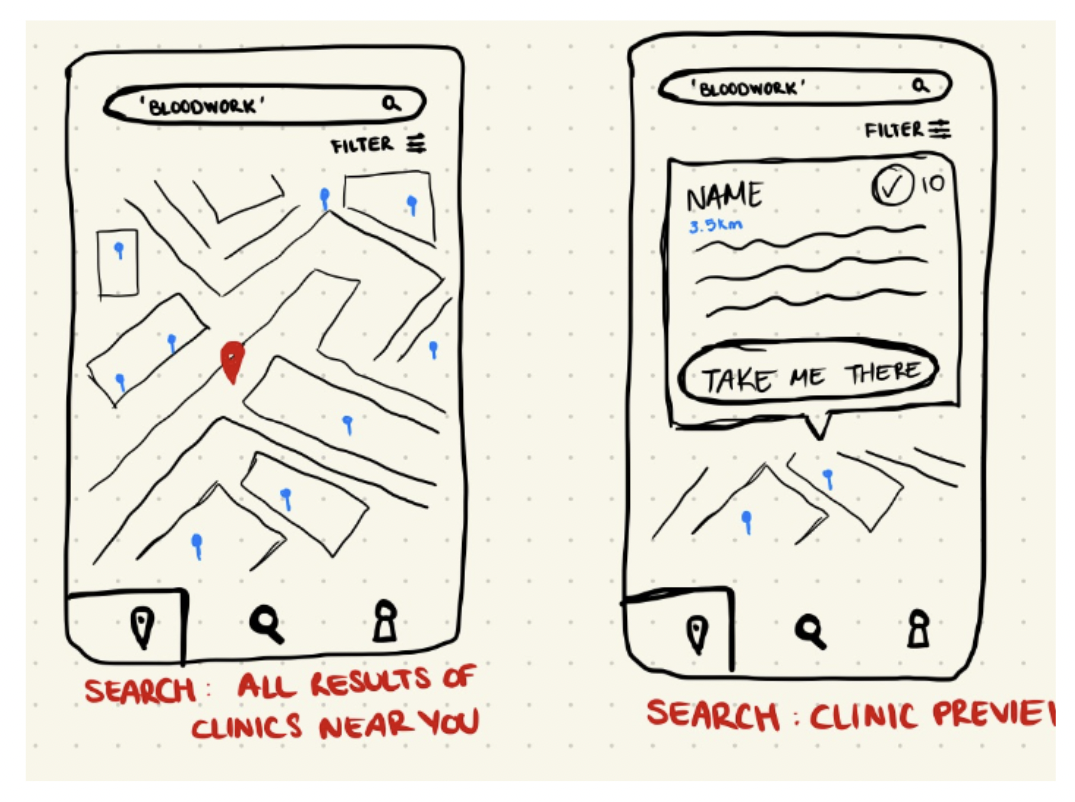 'BLOODWORK'
FILTER
SEARCH: ALL RESULTS OF
CLINICS NEAR YOU
'BLOODWORK'
FILTER
NAME
10
3.5km
TAKE ME THERE
SEARCH: CLINIC PREVIE